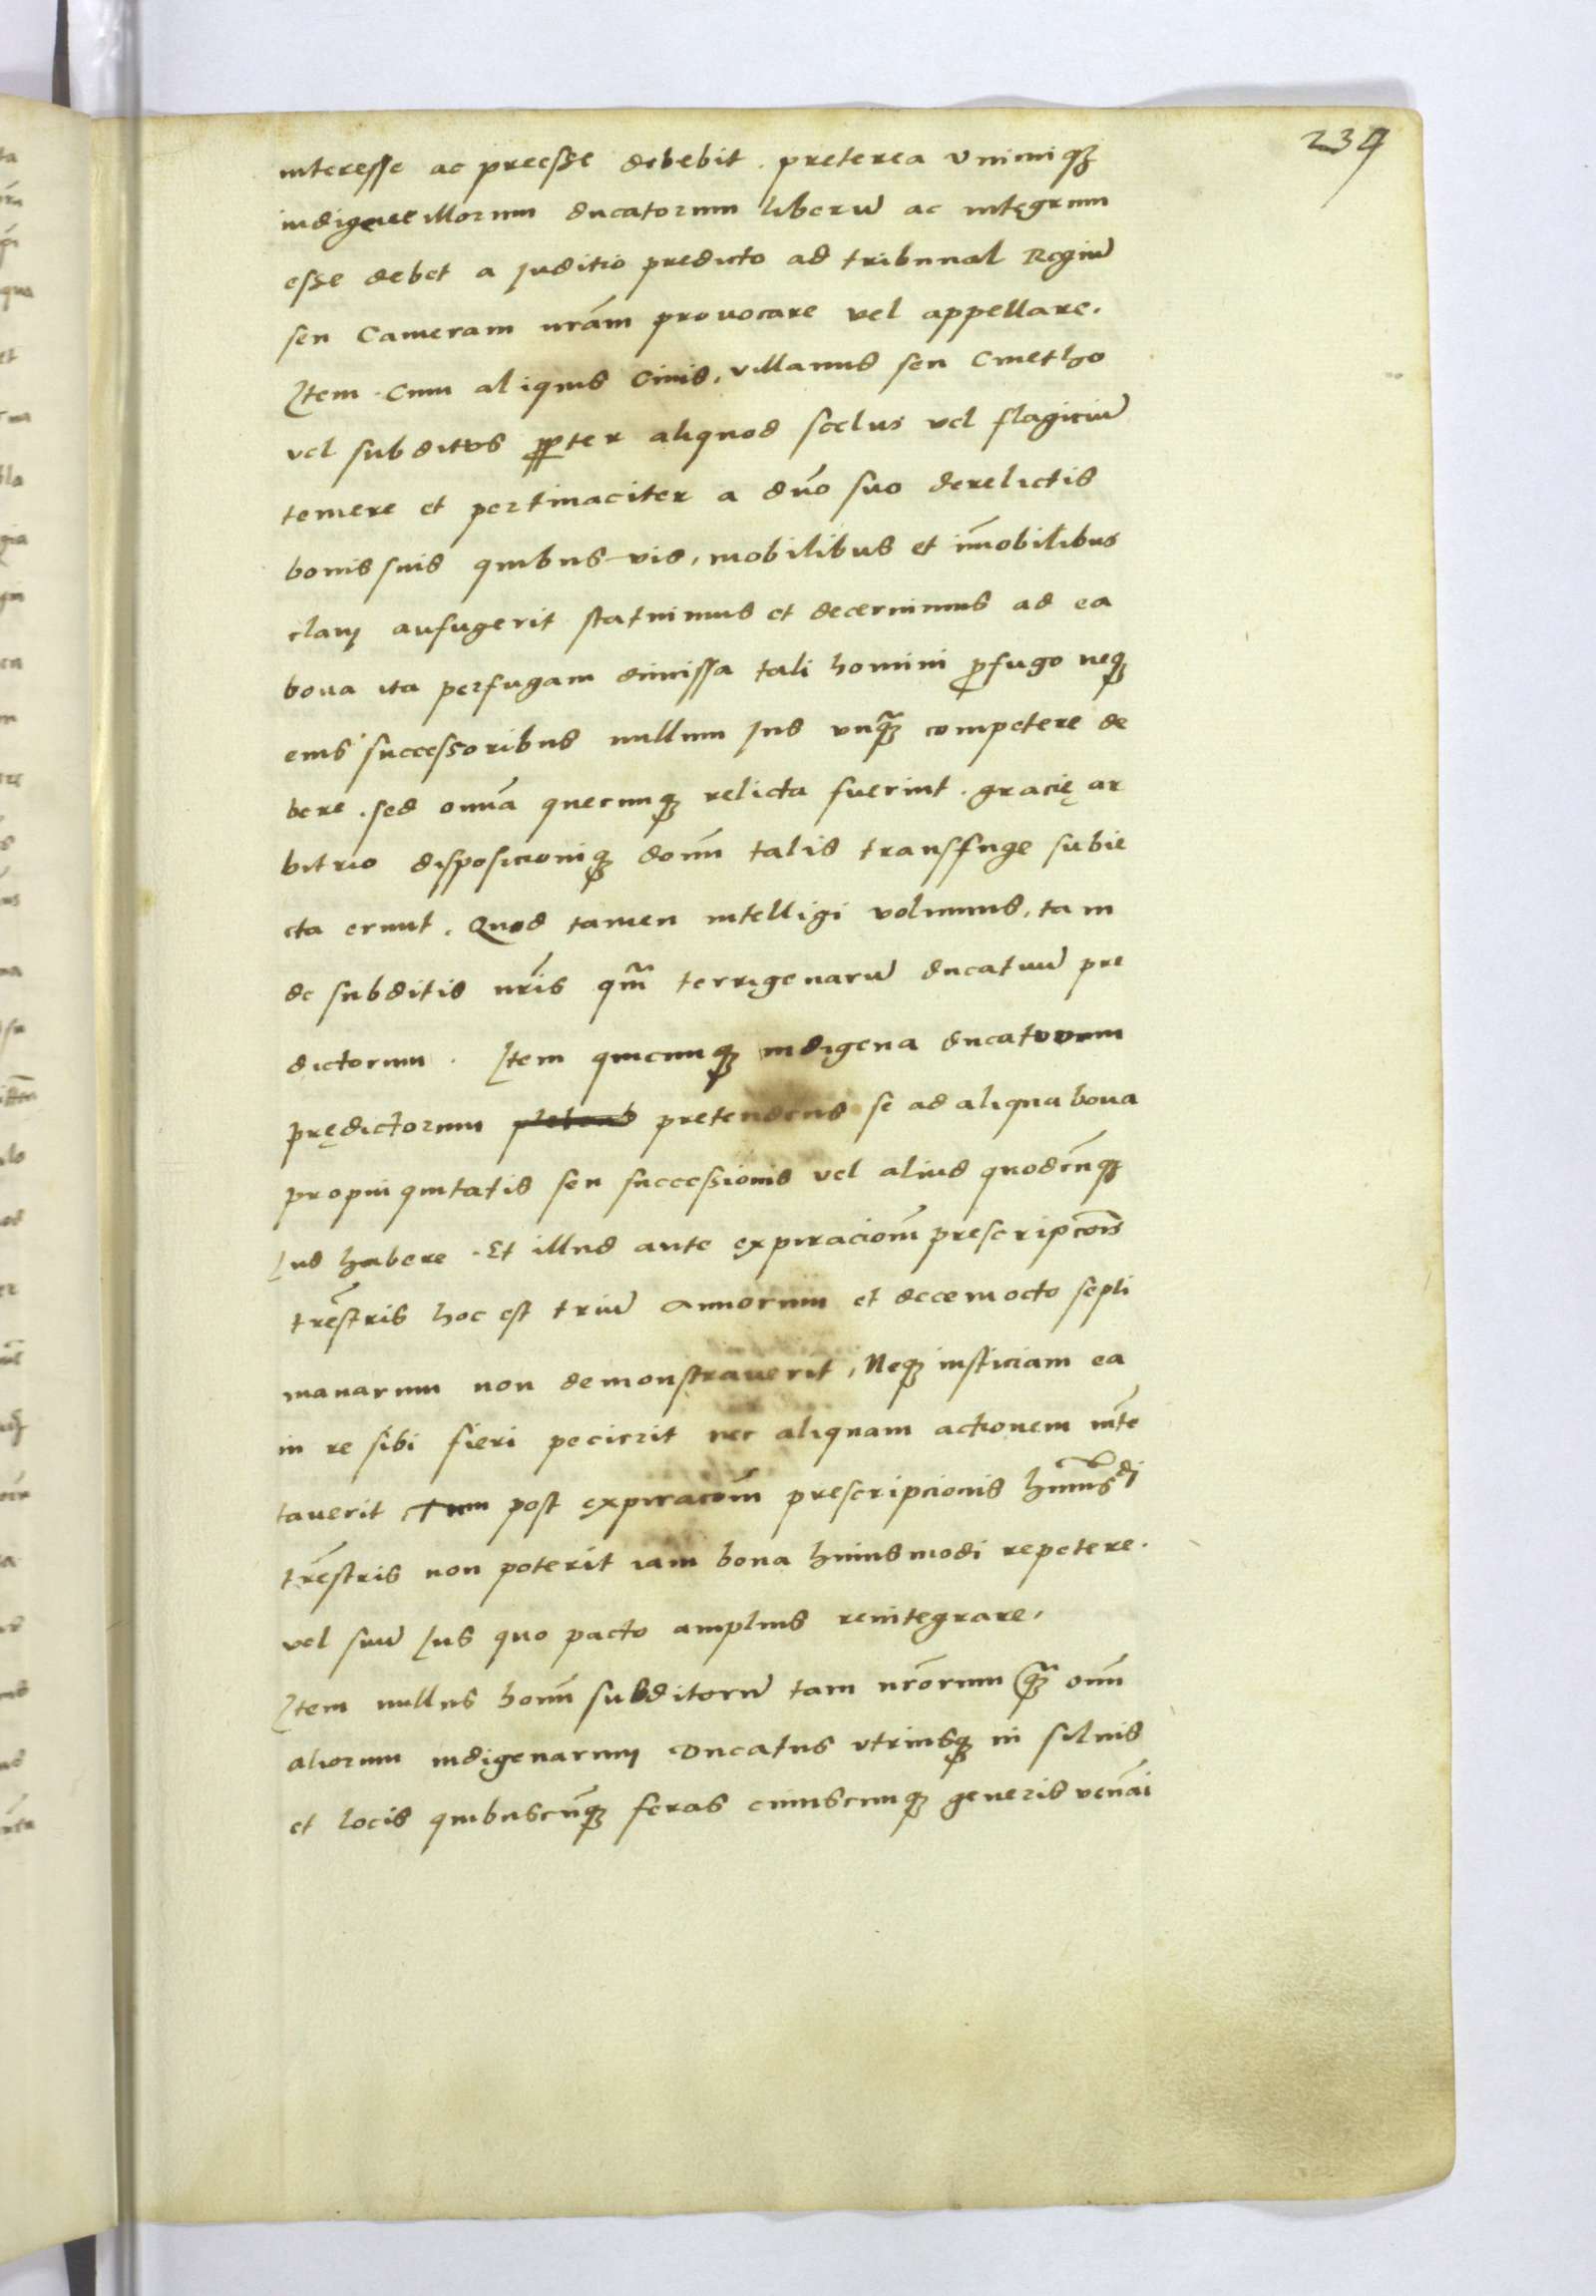 237
interesse ac preesse debebit. preterea Vnicuiqꝫ
indigene illorum ducatorum liberū ac integrum
esse debet a Juditio predicto ad tribunal Regiū
seu Cameram nr̄am prouocare vel appellare.
Item. Cum aliquis Ciuis, villanus seu Cmetho
vel subditus ꝓpter aliquod scelus vel flagiciū
temere et pertinaciter a dn̄o suo derelictis
bonis suis quibus-vis, mobilibus et im̄obilibus
clam aufugerit statuimus et decernimus ad ea
bona ita perfugam dimissa tali homini ꝓfugo neqꝫ
eius successoribus nullum Jus vnq̄ꝫ competere de
bere. sed omīa quecunqꝫ relicta fuerint. gracię ar
bitrio disposicioniqꝫ domī talis transfuge subie
cta erunt. Quod tamen intelligi volumus, tam
de subditis nr̄is qm̄ terrigenarū ducatuū pre
dictorum. Item quicunqꝫ indigena ducatuum
prędictorum pretendens se ad aliqua bona
propinquitatis seu successionis vel aliud quodcūqꝫ
Jus habere. Et illud ante expiracionē prescripcōis
trēstris hoc est triū annorum et decemocto septi
manarum non demonstrauerit, Neqꝫ iusticiam ea
in re sibi fieri pecierit nec aliquam actionem intē
tauerit Tum post expiracōm̄ prescripcionis huīusdi
trēstris non poterit iam bona huiusmodi repetere.
vel suū Jus quo pacto amplius reintegrare.
Item nullus homī subditorū tam nr̄orum q̄ꝫ om̄
aliorum indigenarum Ducatus vtriusqꝫ in siluis
et locis quibuscūqꝫ feras cuiuscunqꝫ generis venāi